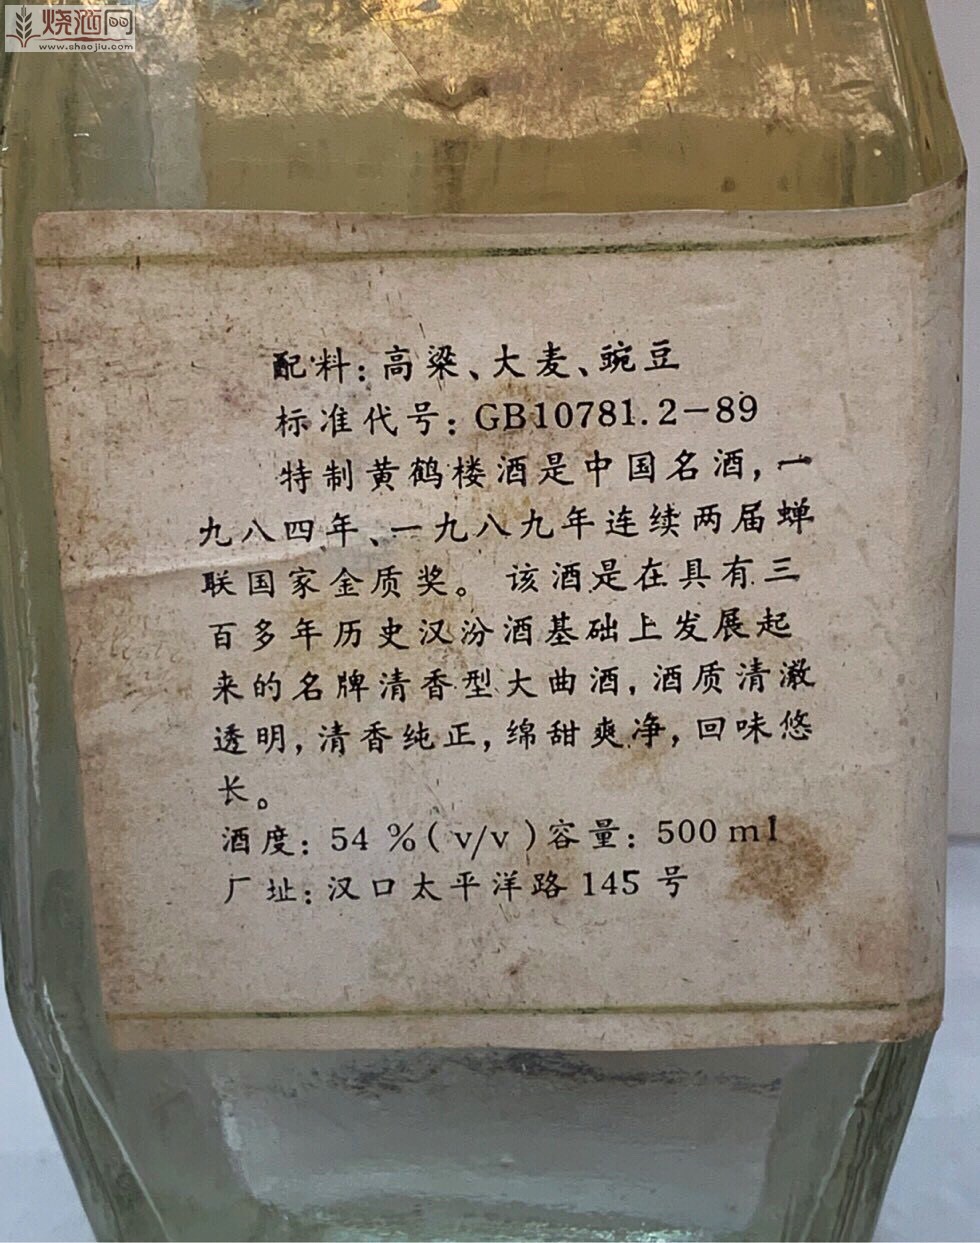 烧酒网
www.shaojiu.com
配料:高粱、大麦、豌豆
标准代号:GB10781.2-89
特制黄鹤楼酒是中国名酒,一
九八四年、一九八九年连续两届蝉
联国家金质奖。该酒是在具有三
百多年历史汉汾酒基础上发展起
来的名牌清香型大曲酒,酒质清澈
透明,清香纯正,绵甜爽净,回味悠
长。
酒度:54%(v/v)容量:500ml
厂址:汉口太平洋路145号